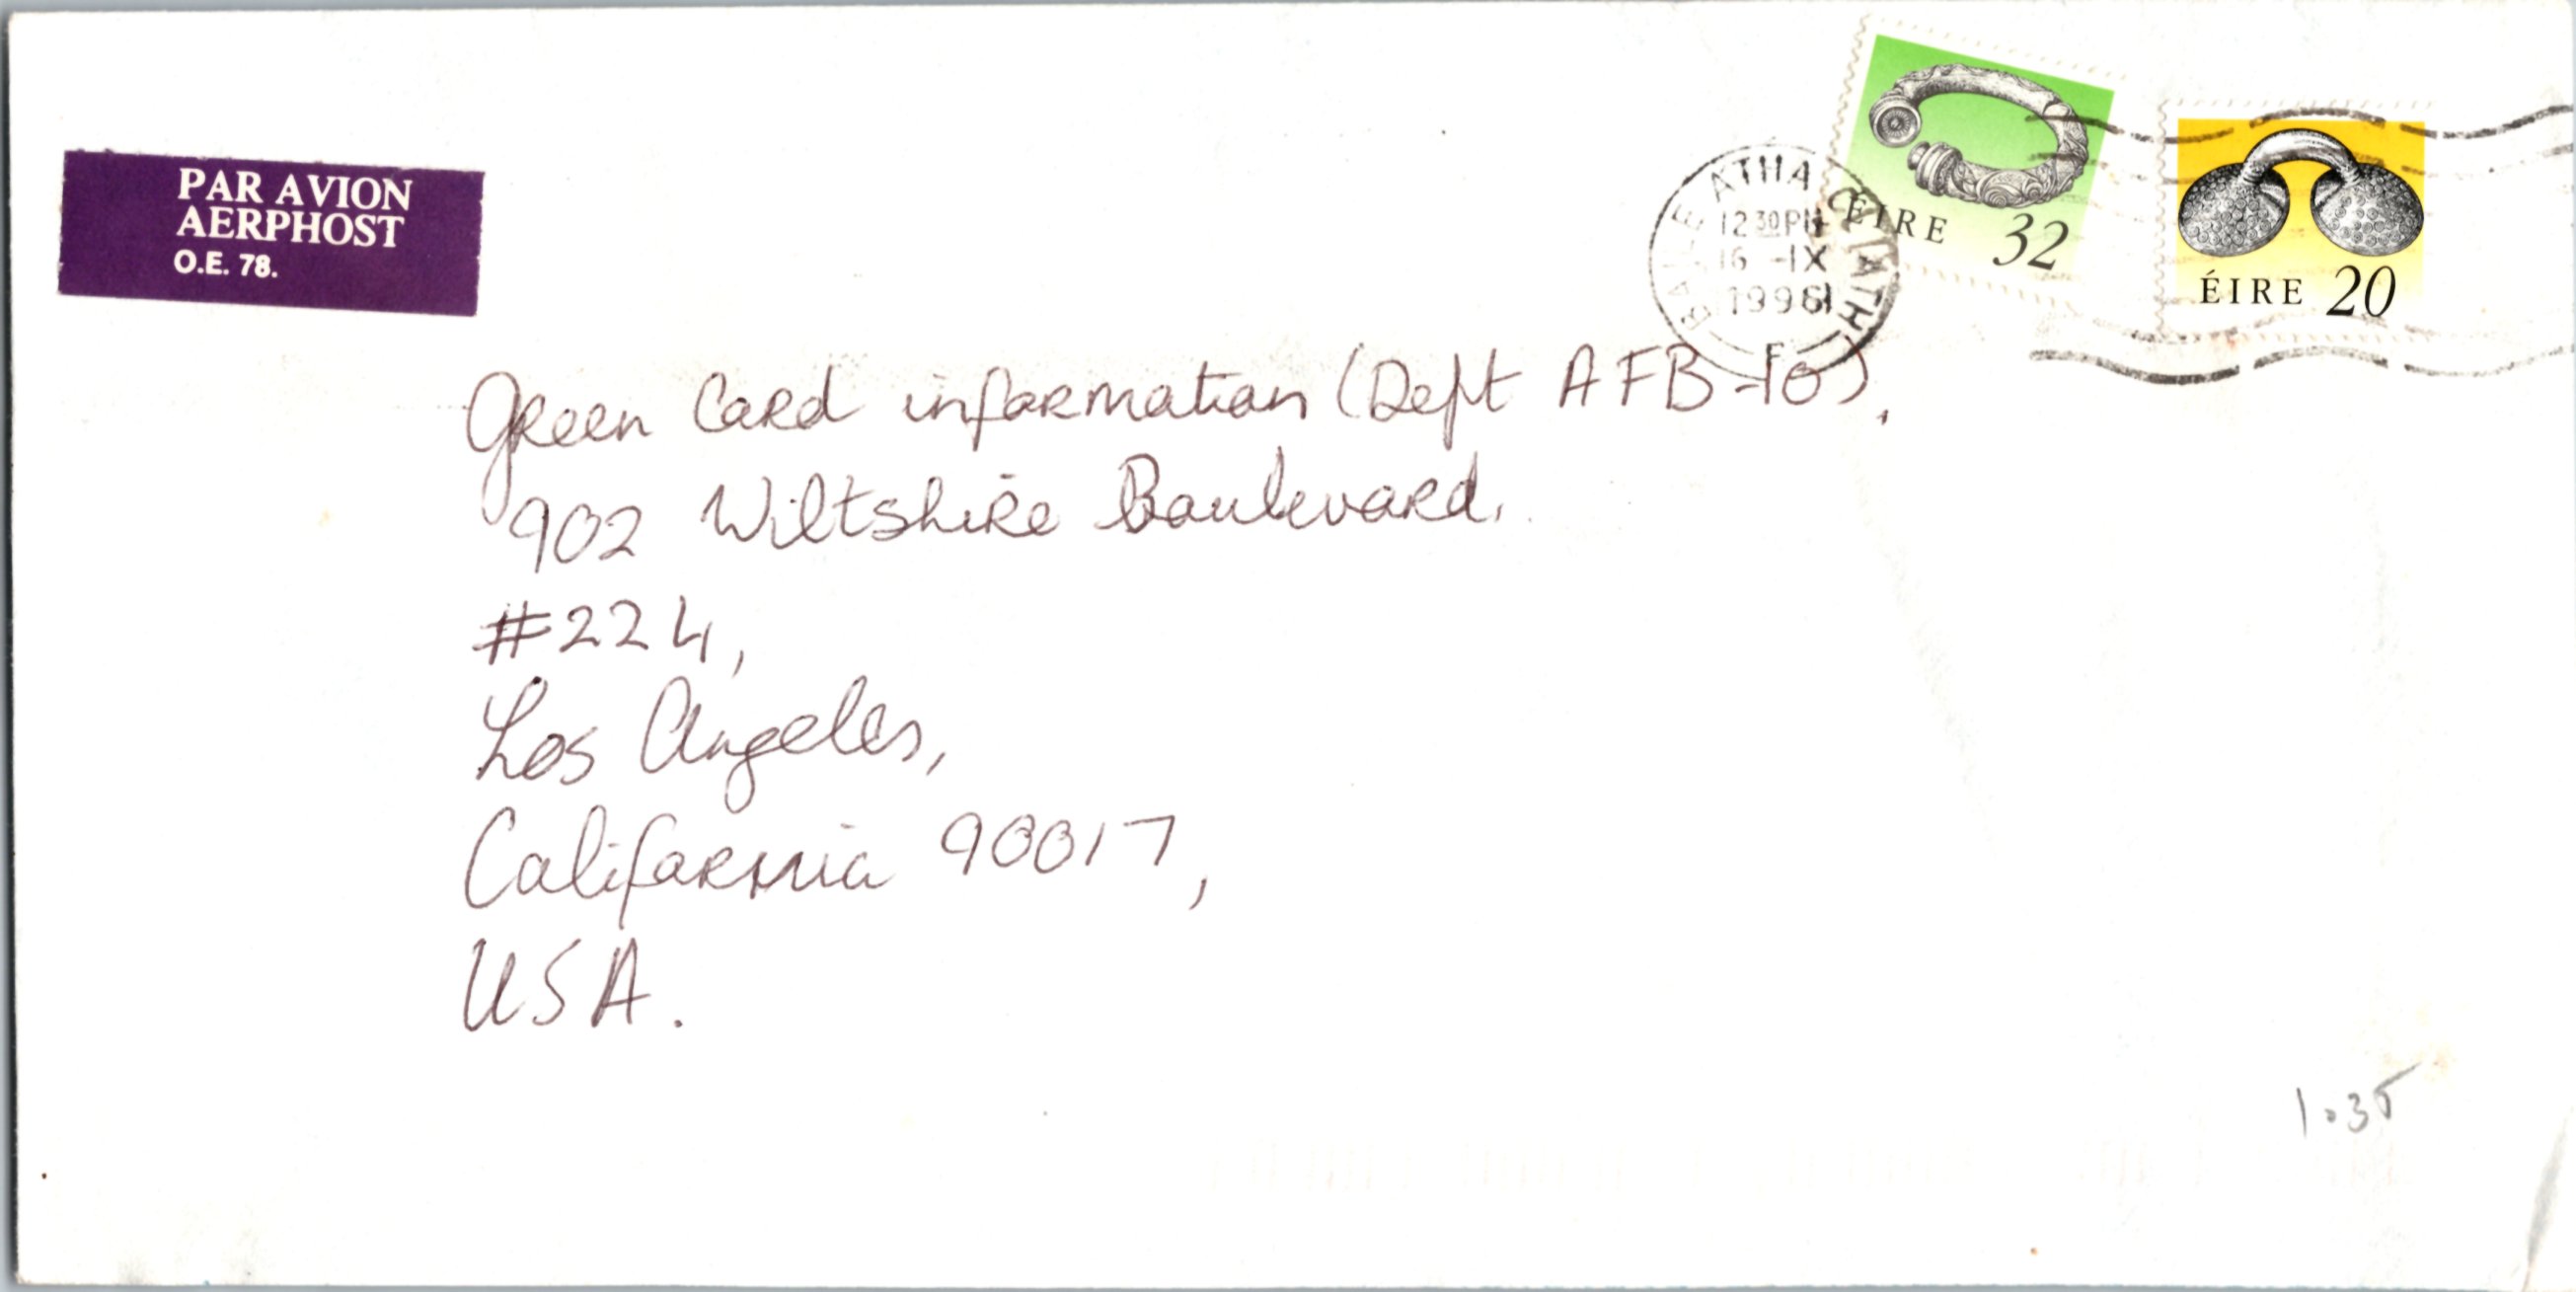 PAR AVION
AERPHOST
O.E. 78.
BAILE ATHA CLIATH
12 30 PM
16 -IX
1996
F
ÉIRE 32
ÉIRE 20
Green Card information (Dept AFB-10),
902 Wiltshire Boulevard,
#224,
Los Angeles,
California 90017,
USA.
1.35